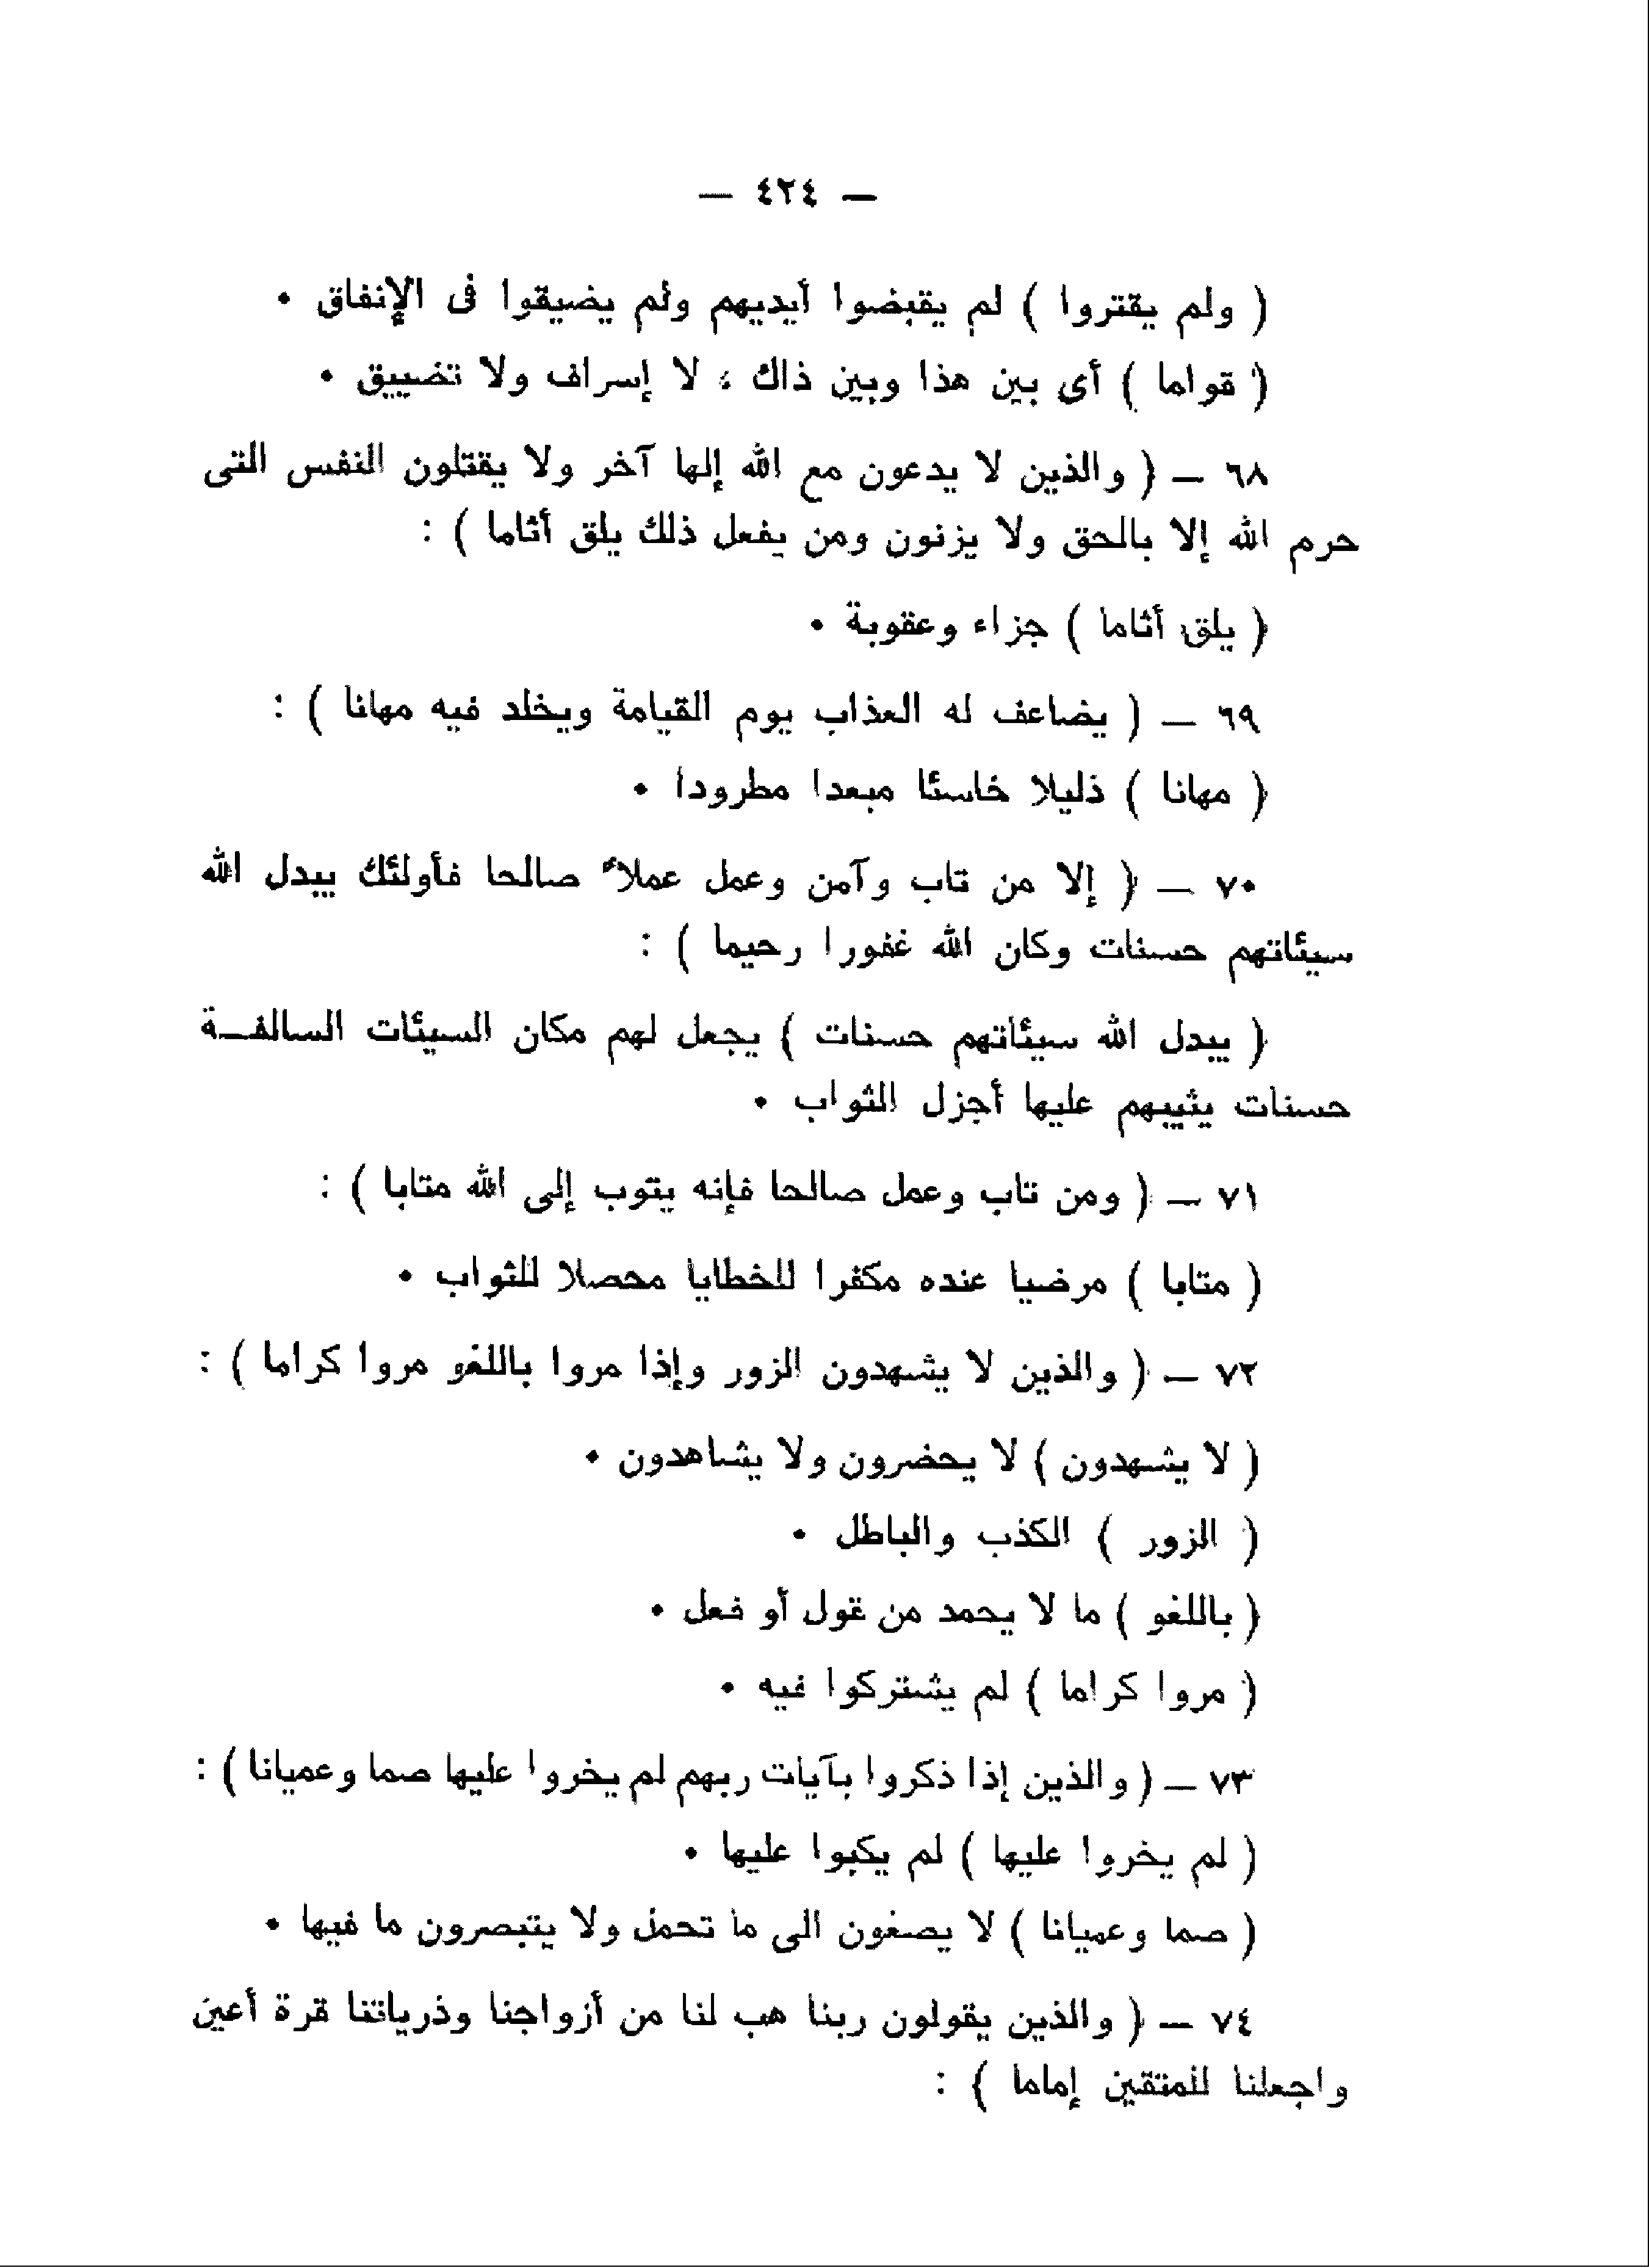 — ٤٢٤ —
( ولم يقتروا ) لم يقبضوا أيديهم ولم يضيقوا فى الإنفاق .
( قواما ) أى بين هذا وبين ذاك ، لا إسراف ولا تضييق .
٦٨ — ( والذين لا يدعون مع الله إلها آخر ولا يقتلون النفس التى
حرم الله إلا بالحق ولا يزنون ومن يفعل ذلك يلق أثاما ) :
( يلق أثاما ) جزاء وعقوبة .
٦٩ — ( يضاعف له العذاب يوم القيامة ويخلد فيه مهانا ) :
( مهانا ) ذليلا خاسئا مبعدا مطرودا .
٧٠ — ( إلا من تاب وآمن وعمل عملا صالحا فأولئك يبدل الله
سيئاتهم حسنات وكان الله غفورا رحيما ) :
( يبدل الله سيئاتهم حسنات ) يجعل لهم مكان السيئات السالفـة
حسنات يثيبهم عليها أجزل الثواب .
٧١ — ( ومن تاب وعمل صالحا فإنه يتوب إلى الله متابا ) :
( متابا ) مرضيا عنده مكفرا للخطايا محصلا للثواب .
٧٢ — ( والذين لا يشهدون الزور وإذا مروا باللغو مروا كراما ) :
( لا يشهدون ) لا يحضرون ولا يشاهدون .
( الزور ) الكذب والباطل .
( باللغو ) ما لا يحمد من قول أو فعل .
( مروا كراما ) لم يشتركوا فيه .
٧٣ — ( والذين إذا ذكروا بآيات ربهم لم يخروا عليها صما وعميانا ) :
( لم يخروا عليها ) لم يكبوا عليها .
( صما وعميانا ) لا يصغون الى ما تحمل ولا يتبصرون ما فيها .
٧٤ — ( والذين يقولون ربنا هب لنا من أزواجنا وذرياتنا قرة أعين
واجعلنا للمتقين إماما ) :